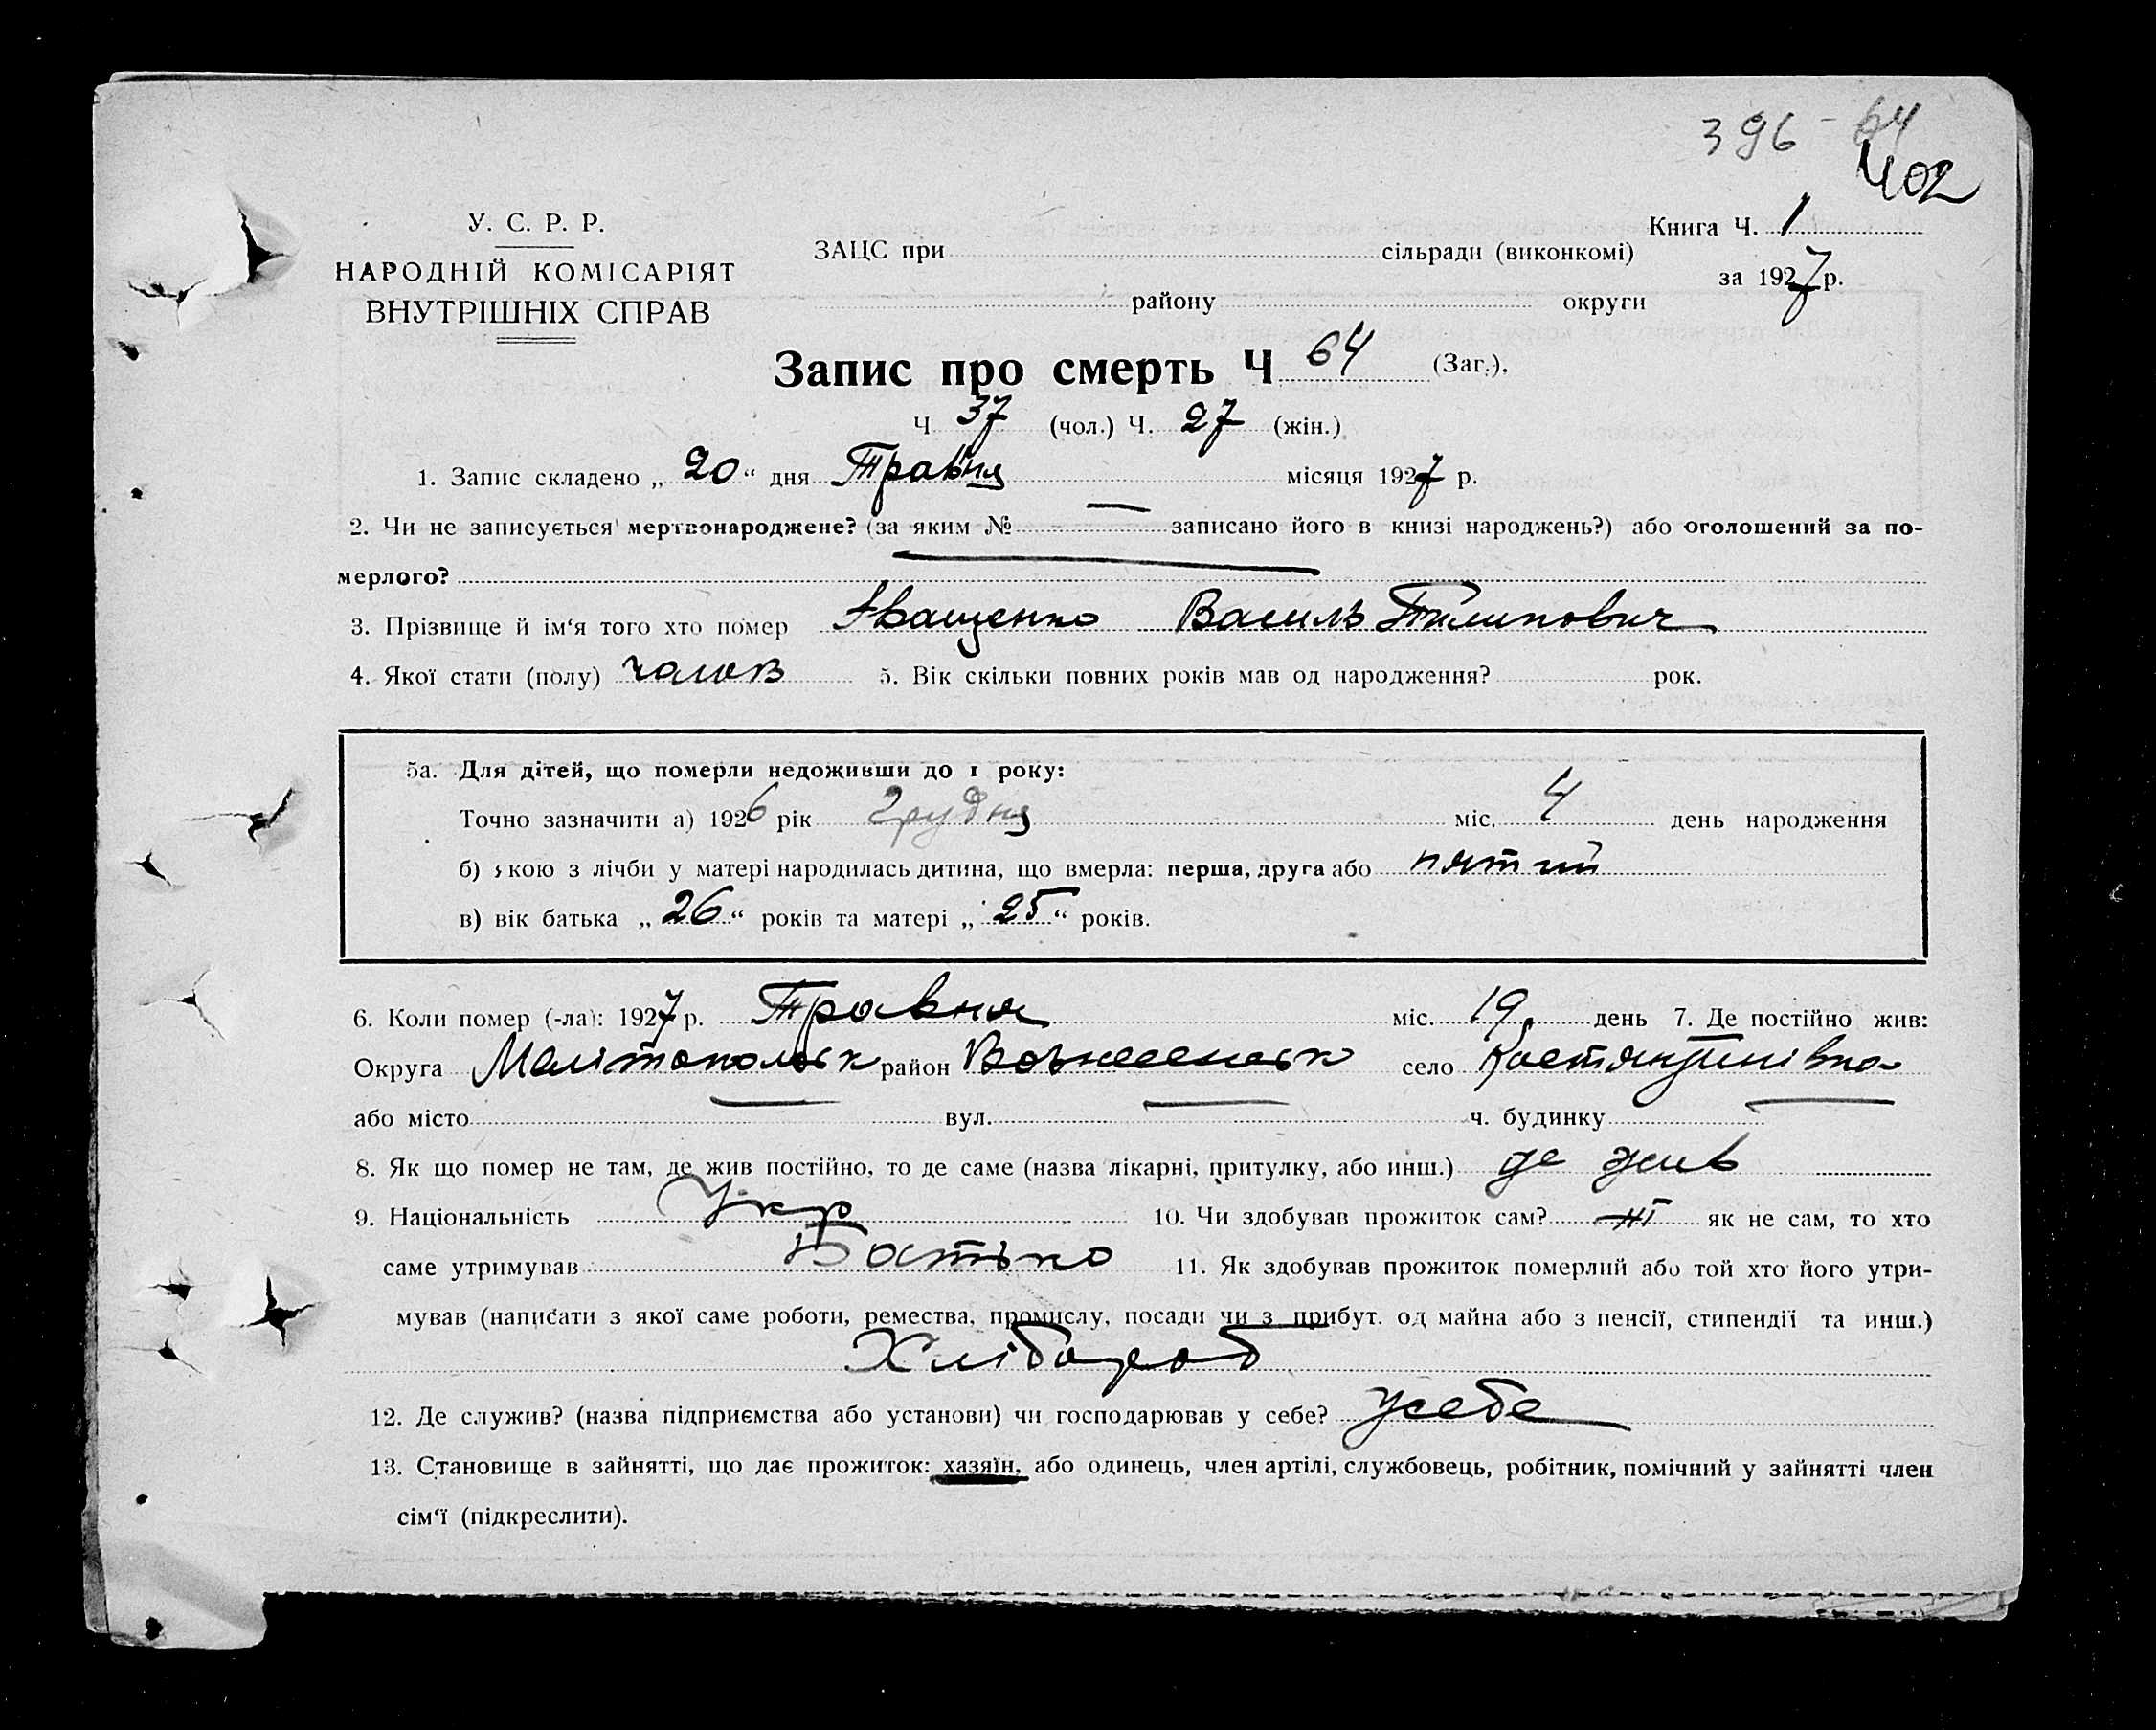 396 - 64
402
У. С. Р. Р.
НАРОДНІЙ КОМІСАРІЯТ
ВНУТРІШНІХ СПРАВ
ЗАЦС при сільради (виконкомі)
району округи
Книга Ч. 1
за 1927 р.
Запис про смерть Ч 64 (Заг.).
Ч 37 (чол.) Ч. 27 (жін.)
1. Запис складено „ 20 “ дня Травня місяця 1927 р.
2. Чи не записується мертвонароджене? (за яким № — записано його в книзі народжень?) або оголошений за по-
мерлого? —
3. Прізвище й ім‘я того хто помер Іващенко Василь Пилипович
4. Якої стати (полу) чолов 5. Вік скільки повних років мав од народження? рок.
5а. Для дітей, що померли недоживши до 1 року:
Точно зазначити а) 1926 рік Грудня міс. 4 день народження
б) якою з лічби у матері народилась дитина, що вмерла: перша, друга або пятий
в) вік батька „ 26 “ років та матері „ 25 “ років.
6. Коли помер (-ла): 1927 р. Травня міс. 19 день 7. Де постійно жив:
Округа Мелітопольськ район Вознесенськ село Костянтинівка
або місто — вул. — ч. будинку —
8. Як що помер не там, де жив постійно, то де саме (назва лікарні, притулку, або инш.) де жив
9. Національність Укр 10. Чи здобував прожиток сам? ні як не сам, то хто
саме утримував Батько 11. Як здобував прожиток померлий або той хто його утри-
мував (написати з якої саме роботи, ремества, промислу, посади чи з прибут. од майна або з пенсії, стипендії та инш.)
Хлібороб
12. Де служив? (назва підприємства або установи) чи господарював у себе? усебе
13. Становище в зайнятті, що дає прожиток: хазяїн, або одинець, член артілі, службовець, робітник, помічний у зайнятті член
сім‘ї (підкреслити).